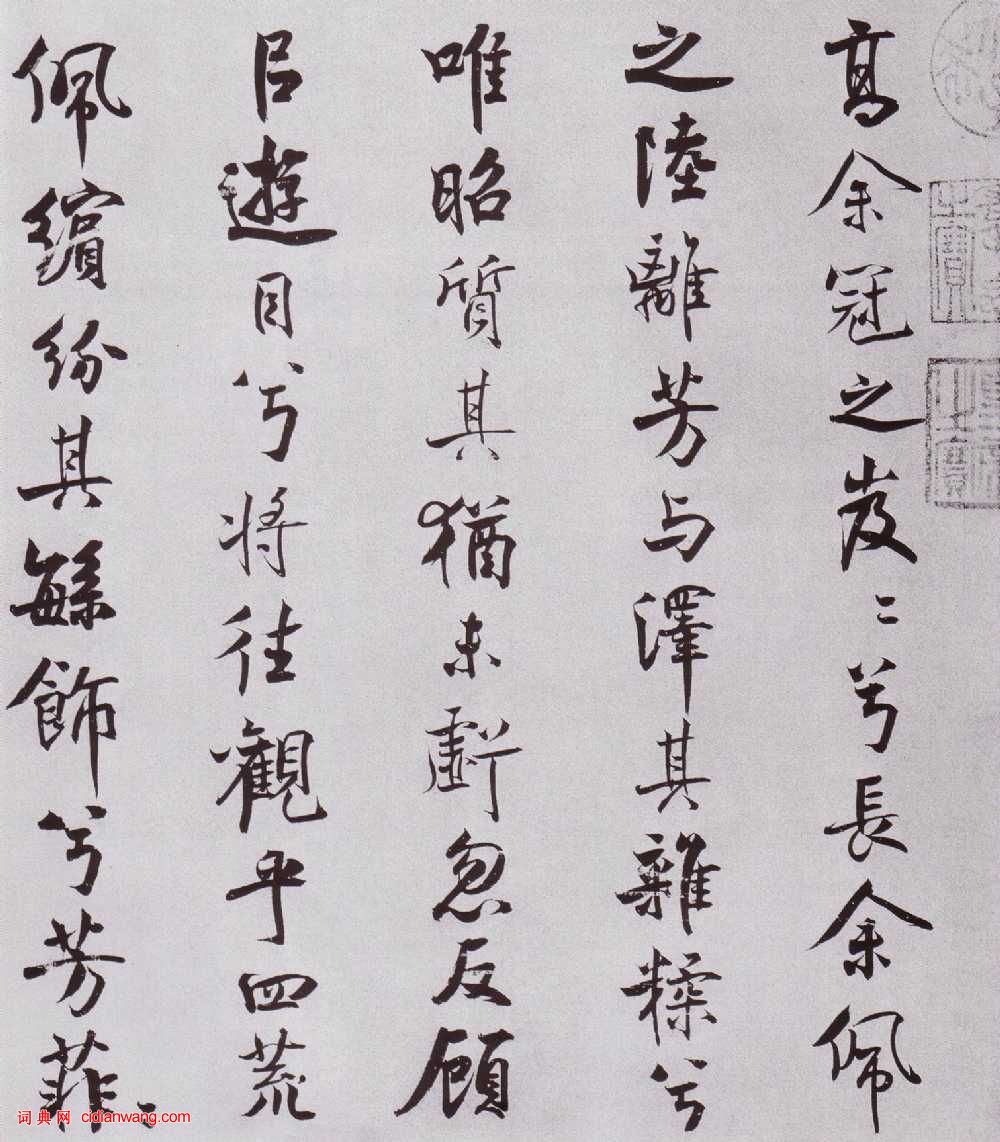 高余冠之岌〻兮長余佩
之陸離芳与澤其雜糅兮
唯昭質其猶未虧忽反顧
㠯遊目兮将往觀乎四荒
佩繽紛其繁飾兮芳菲〻
词典网 cidianwang.com